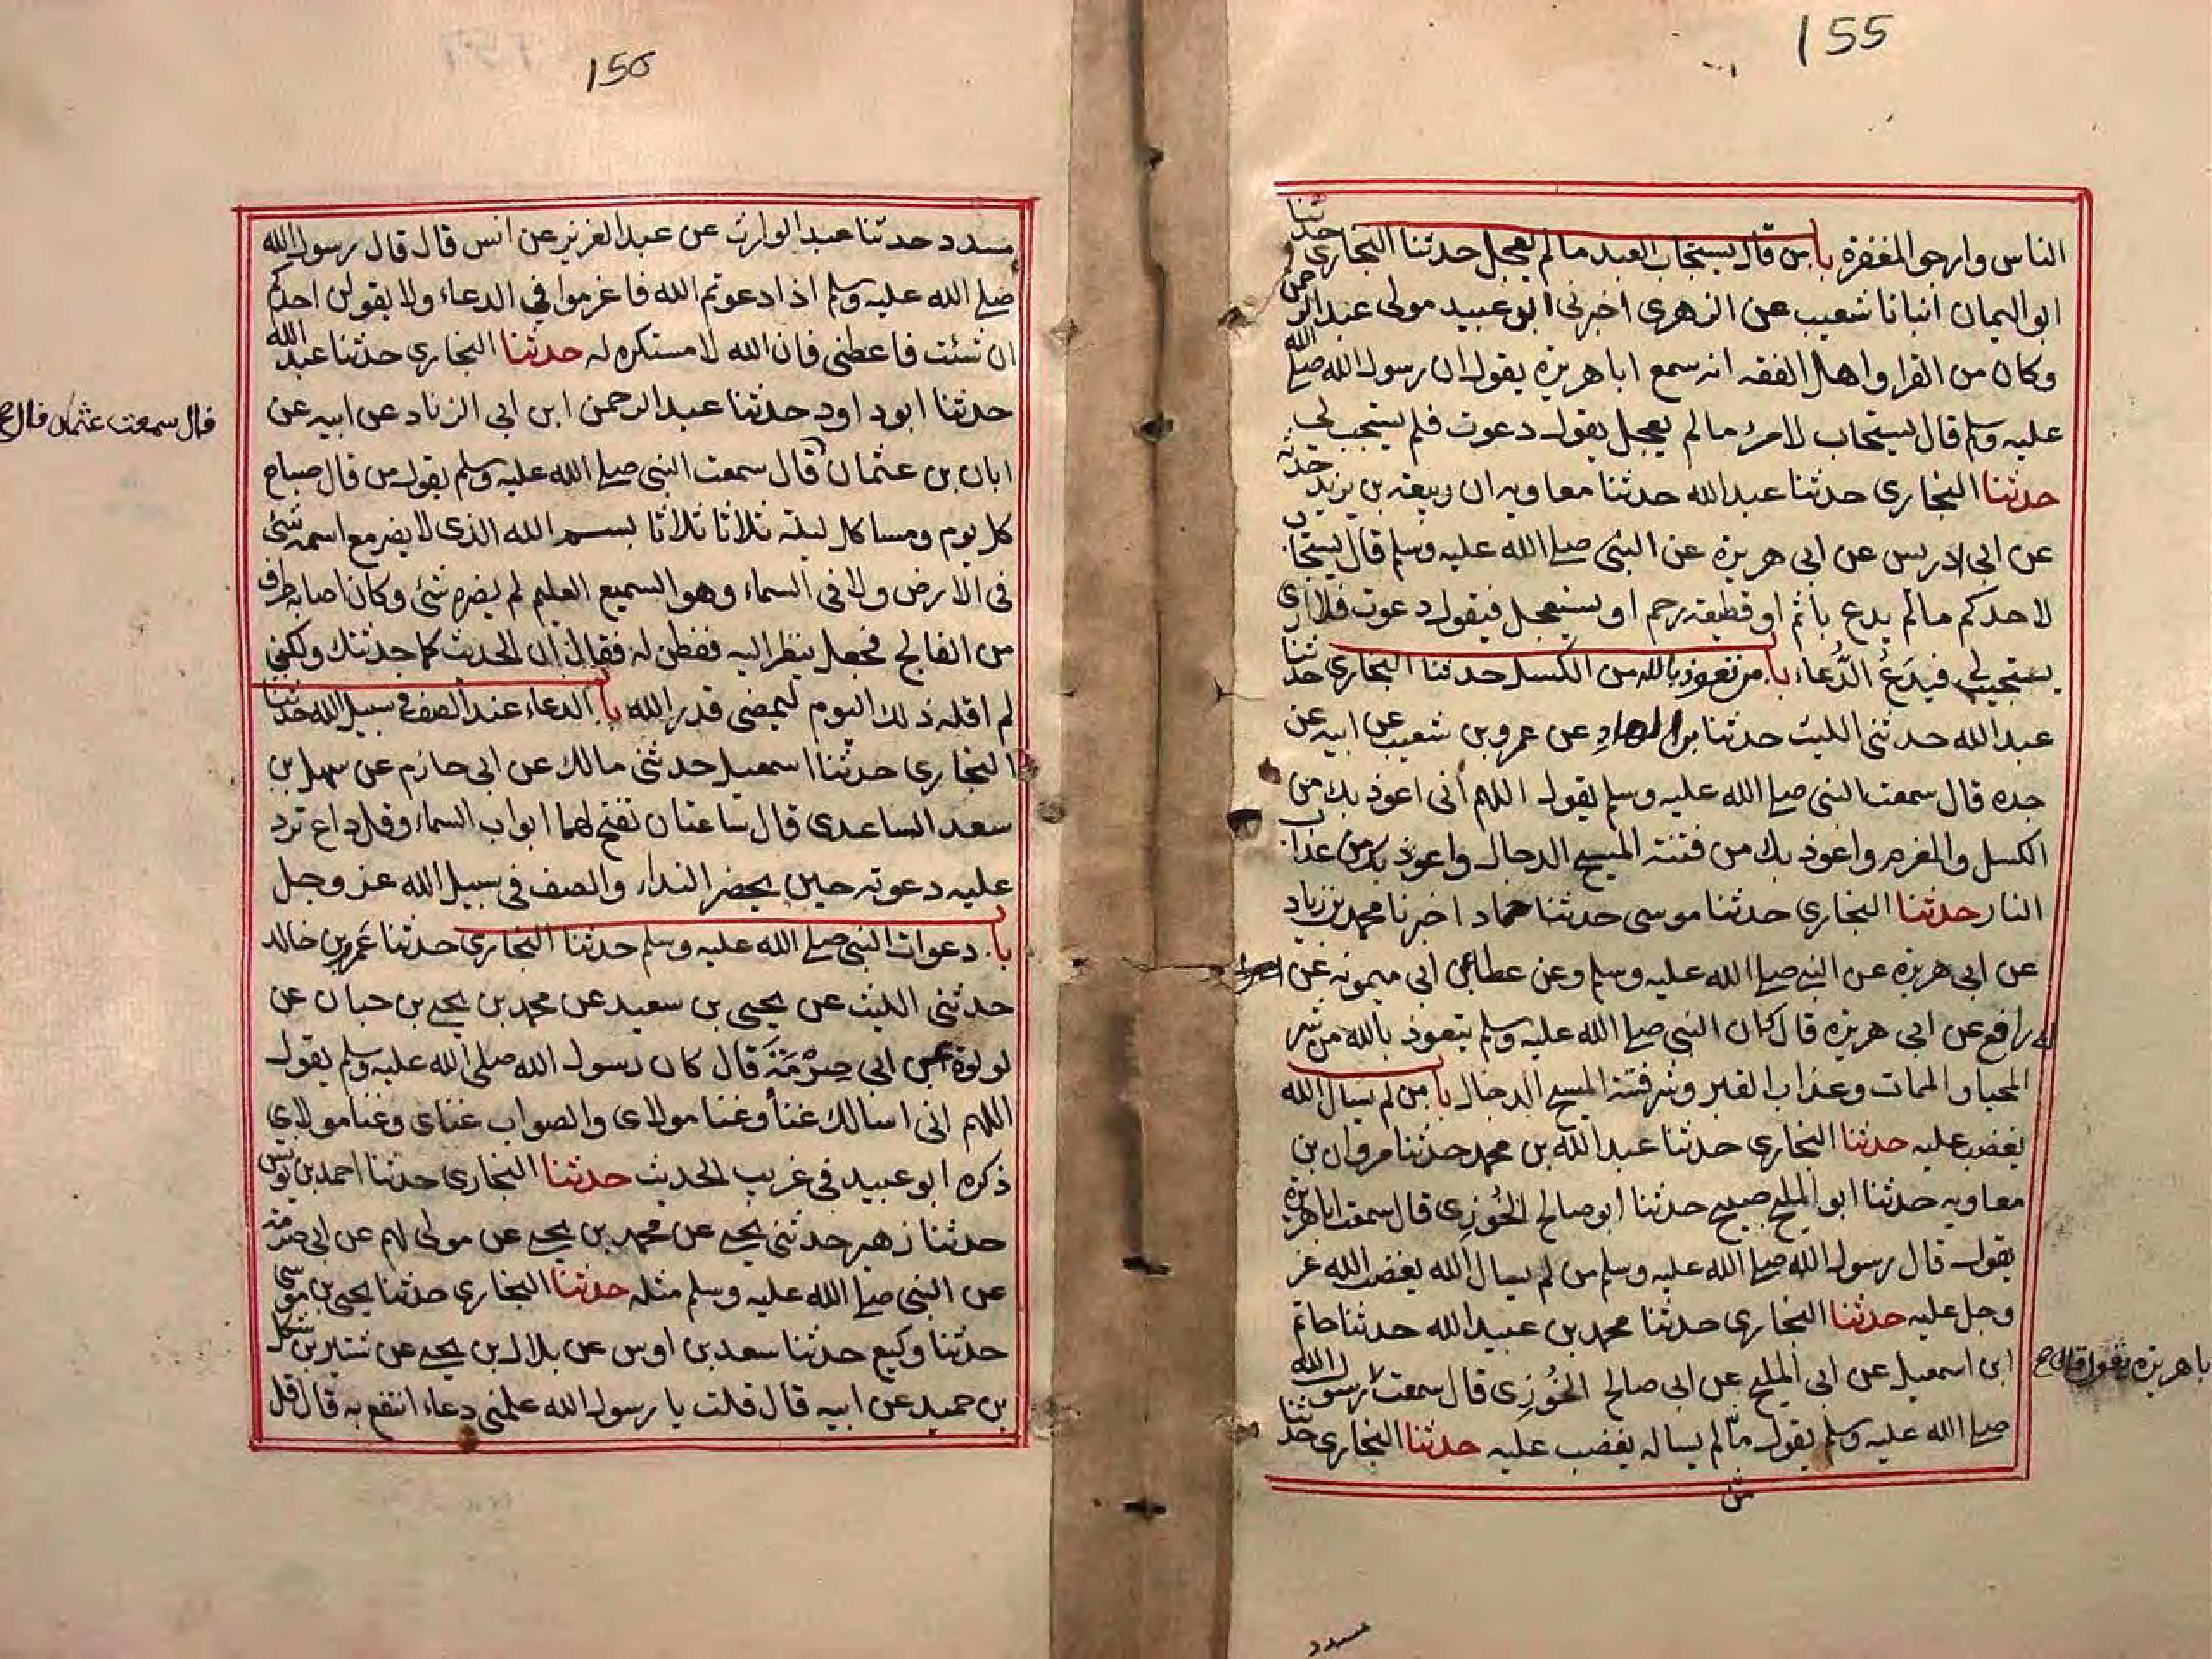 155
الناس وارجو المغفرة باب من قال يستجاب العبد ما لم يعجل حدثنا البخاري حدثنا
ابو اليمان انبانا شعيب عن الزهرى اخبرنى ابو عبيد مولى عبد الرحمن
وكان من القرا واهل الفقه انه سمع ابا هريرة يقول ان رسول الله صلى الله
عليه وسلم قال يستجاب لامرء ما لم يعجل يقول دعوت فلم يستجب لى
حدثنا البخارى حدثنا عبد الله حدثنا معاويه ان ربيعة بن يزيد حدثه
عن ابى ادريس عن ابى هريرة عن النبى صلى الله عليه وسلم قال يستجاب
لاحدكم ما لم يدع باثم او قطيعة رحم او يستعجل فيقول دعوت فلا ارى
يستجيب لى فيدع الدعاء باب من تعوذ بالله من الكسل حدثنا البخارى حدثنا
عبد الله حدثنى الليث حدثنا بن الهاد عن عمرو بن شعيب عن ابيه عن
جده قال سمعت النبى صلى الله عليه وسلم يقول اللهم انى اعوذ بك من
الكسل والمغرم واعوذ بك من فتنة المسيح الدجال واعوذ بك من عذاب
النار حدثنا البخارى حدثنا موسى حدثنا حماد اخبرنا محمد بن زياد
عن ابى هريرة عن النبى صلى الله عليه وسلم وعن عطا عن ابى ميمونه عن
رافع عن ابى هريرة قال كان النبى صلى الله عليه وسلم يتعوذ بالله من شر
المحيا والممات وعذاب القبر وشر فتنة المسيح الدجال باب من لم يسال الله
يغضب عليه حدثنا البخارى حدثنا عبد الله بن محمد حدثنا مروان بن
معاويه حدثنا ابو المليح صبيح حدثنا ابو صالح الخُوزِى قال سمعت ابا هريرة
يقول قال رسول الله صلى الله عليه وسلم من لم يسال الله يغضب الله عز
وجل عليه حدثنا البخارى حدثنا محمد بن عبيد الله حدثنا حاتم
ابن اسمعيل عن ابى المليح عن ابى صالح الخُوزِى قال سمعت رسول الله
ابا هريرة يقول قال
صلى الله عليه وسلم يقول من لم يساله يغضب عليه حدثنا البخارى حدثنا
من
مسدد
مسدد حدثنا عبد الوارث عن عبد العزيز عن انس قال قال رسول الله
صلى الله عليه وسلم اذا دعوتم الله فاعزموا في الدعاء ولا يقولن احدكم
ان شئت فاعطنى فان الله لا مستكره له حدثنا البخارى حدثنا عبد الله
حدثنا ابو داود حدثنا عبد الرحمن ابن ابى الزناد عن ابيه عن
قال سمعت عثمان قال
ابان بن عثمان قال سمعت النبى صلى الله عليه وسلم يقول من قال صباح
كل يوم ومسا كل ليلة ثلاثا ثلاثا بسم الله الذى لا يضر مع اسمه شئ
فى الارض ولا فى السماء وهو السميع العليم لم يضره شئ وكان اصابه طرف
من الفالج فجعل ينظر اليه ففطن له فقال ان الحديث كما حدثتك ولكنى
لم اقله ذلك اليوم ليمضى قدر الله باب الدعاء عند الصف فى سبيل الله حدثنا
البخارى حدثنا اسمعيل حدثنى مالك عن ابى حازم عن سهل بن
سعد الساعدى قال ساعتان تفتح لهما ابواب السماء وقل داع ترد
عليه دعوته حين يحضر النداء والصف فى سبيل الله عز وجل
باب دعوات النبى صلى الله عليه وسلم حدثنا البخارى حدثنا عمرو بن خالد
حدثنى الليث عن يحيى بن سعيد عن محمد بن يحيى بن حبان عن
لولوة عن ابى صِرْمَةَ قال كان رسول الله صلى الله عليه وسلم يقول
اللهم انى اسالك غنا وغنا مولاى والصواب غناى وغنا مولاى
ذكره ابو عبيد فى غريب الحديث حدثنا البخارى حدثنا احمد بن يونس
حدثنا زهير حدثنى يحيى عن محمد بن يحيى عن مولى لهم عن ابى صرمة
عن النبى صلى الله عليه وسلم مثله حدثنا البخارى حدثنا يحيى بن موسى
حدثنا وكيع حدثنا سعد بن اوس عن بلال بن يحيى عن شتير بن شكل
بن حميد عن ابيه قال قلت يا رسول الله علمنى دعاء انتفع به قال قل